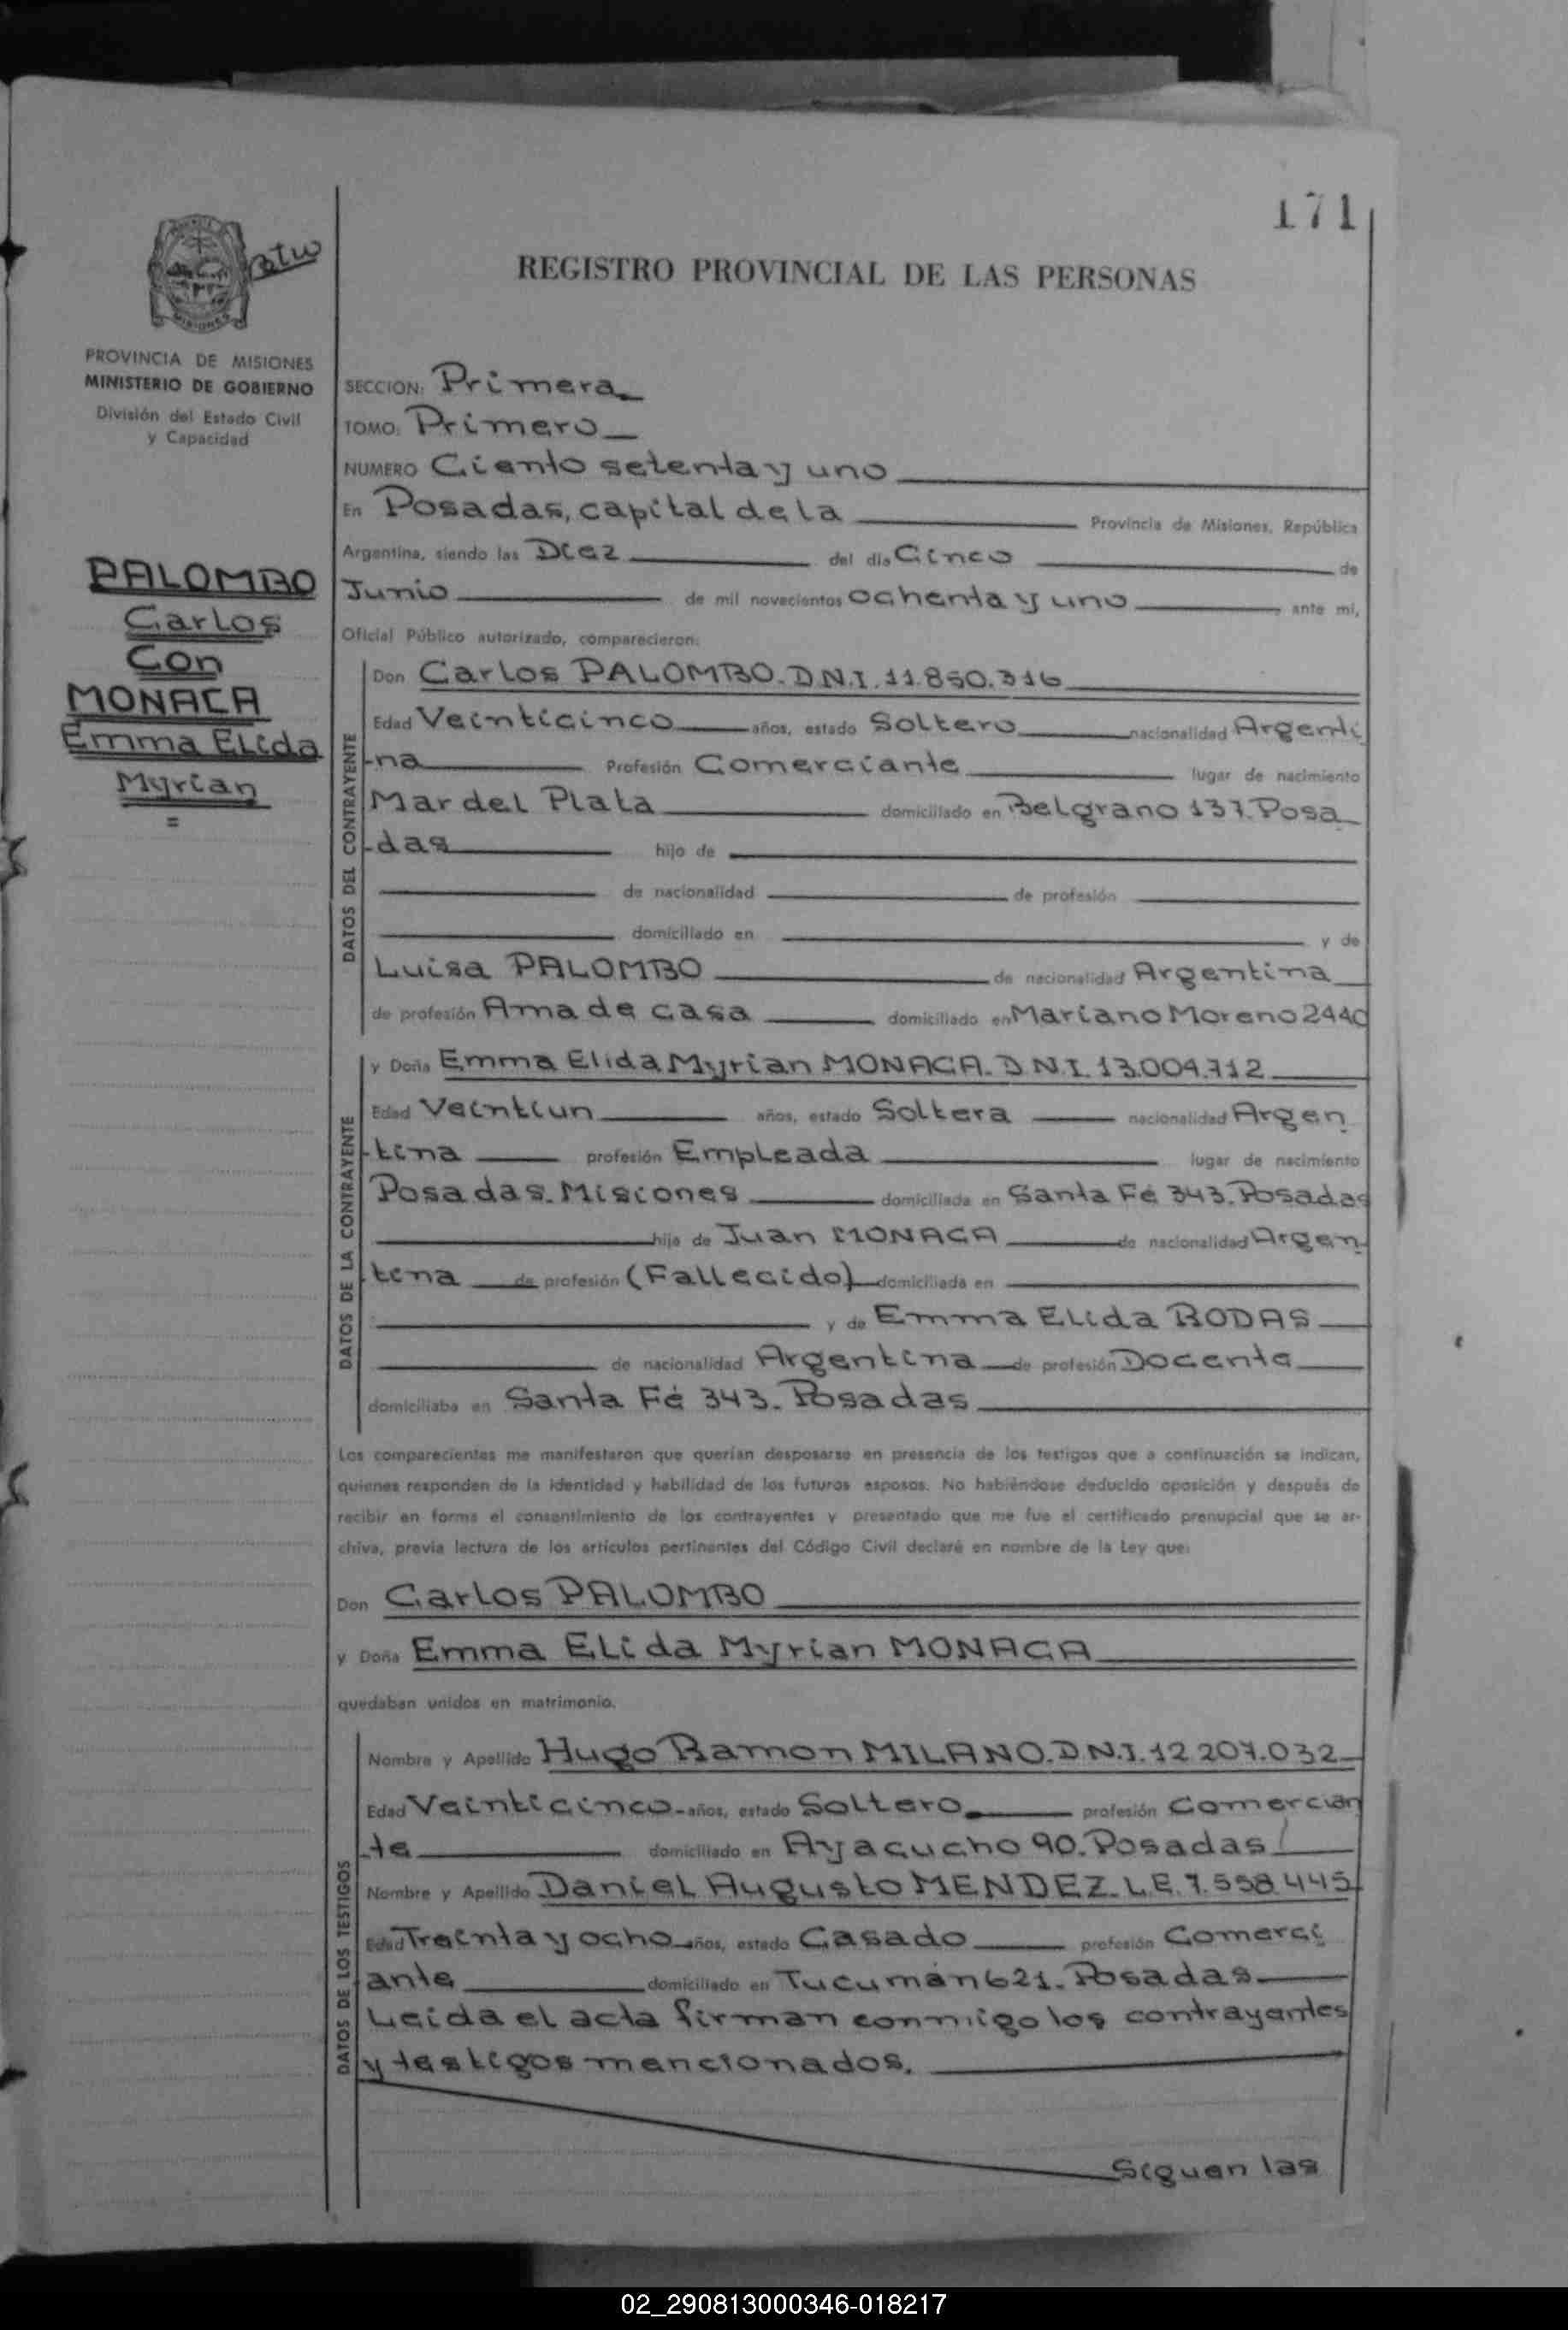 171
REGISTRO PROVINCIAL DE LAS PERSONAS
MISIONES
PROVINCIA DE MISIONES
MINISTERIO DE GOBIERNO
División del Estado Civil
y Capacidad
PALOMBO
Carlos
Con
MONACA
Emma Elida
Myrian
=
SECCION: Primera
TOMO: Primero
NUMERO Ciento setenta y uno
En Posadas, capital de la Provincia de Misiones, República
Argentina, siendo las Diez del día Cinco de
Junio de mil novecientos ochenta y uno ante mí,
Oficial Público autorizado, comparecieron:
DATOS DEL CONTRAYENTE
Don Carlos PALOMBO. D.N.I. 11.850.316
Edad Veinticinco años, estado Soltero nacionalidad Argenti
na Profesión Comerciante lugar de nacimiento
Mar del Plata domiciliado en Belgrano 137. Posa
das hijo de
de nacionalidad de profesión
domiciliado en y de
Luisa PALOMBO de nacionalidad Argentina
de profesión Ama de casa domiciliado en Mariano Moreno 2440
DATOS DE LA CONTRAYENTE
y Doña Emma Elida Myrian MONACA. D.N.I. 13.004.712
Edad Veintiun años, estado Soltera nacionalidad Argen
tina profesión Empleada lugar de nacimiento
Posadas. Misiones domiciliada en Santa Fé 343. Posadas
hija de Juan MONACA de nacionalidad Argen
tina de profesión (Fallecido) domiciliada en
y de Emma Elida RODAS
de nacionalidad Argentina de profesión Docente
domiciliaba en Santa Fé 343. Posadas
Los comparecientes me manifestaron que querían desposarse en presencia de los testigos que a continuación se indican,
quienes responden de la identidad y habilidad de los futuros esposos. No habiéndose deducido oposición y después de
recibir en forma el consentimiento de los contrayentes y presentado que me fue el certificado prenupcial que se ar-
chiva, previa lectura de los artículos pertinentes del Código Civil declaré en nombre de la Ley que:
Don Carlos PALOMBO
y Doña Emma Elida Myrian MONACA
quedaban unidos en matrimonio.
DATOS DE LOS TESTIGOS
Nombre y Apellido Hugo Ramon MILANO. D.N.I. 12.207.032
Edad Veinticinco años, estado Soltero profesión Comercian
te domiciliado en Ayacucho 90. Posadas
Nombre y Apellido Daniel Augusto MENDEZ. L.E. 7.558.445
Edad Treinta y ocho años, estado Casado profesión Comerci
ante domiciliado en Tucumán 621. Posadas
Leida el acta firman conmigo los contrayentes
y testigos mencionados.
Siguen las
02_290813000346-018217